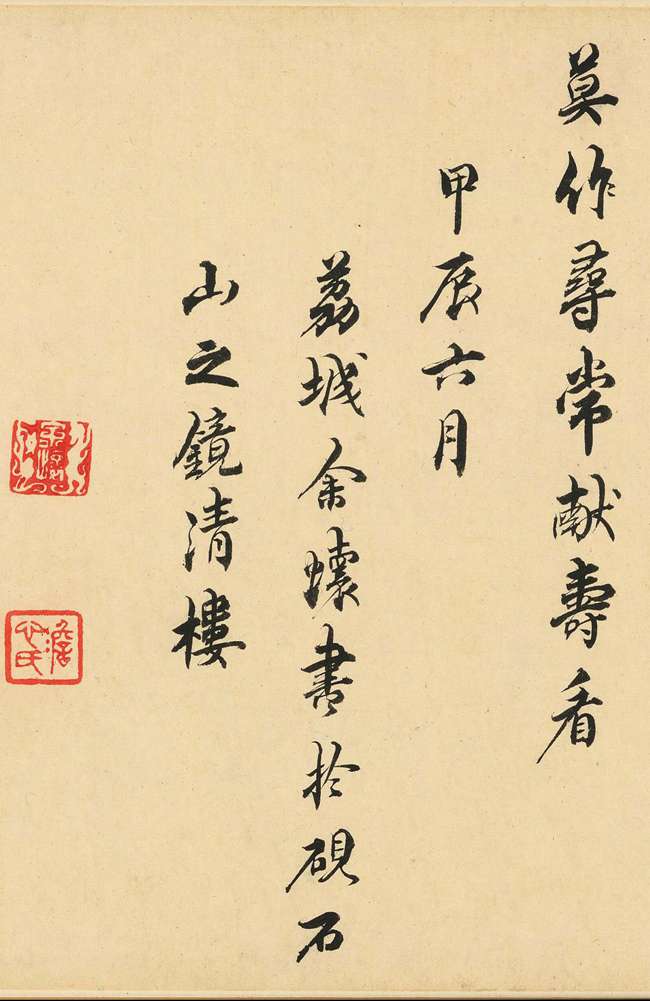 莫作尋常献壽看
甲辰六月
荔城余懷書於硯石
山之鏡清樓
澹心氏